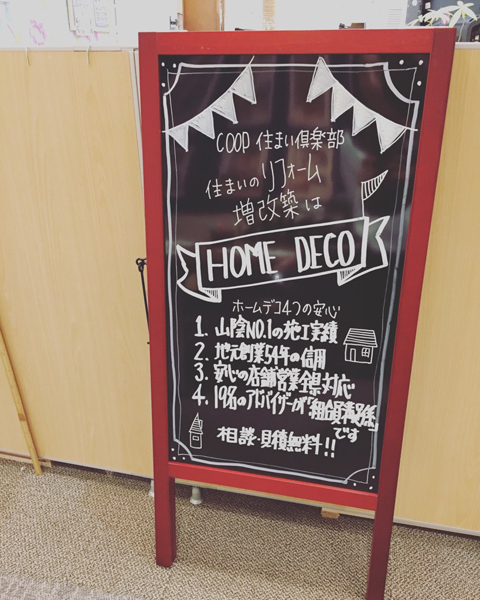 COOP 住まい倶楽部
住まいのリフォーム
増改築は
HOME DECO
ホームデコ4つの安心
1. 山陰NO.1の施工実績
2. 地元創業54年の信用
3. 安心の店舗営業全県対応
4. 19名のアドバイザーが「
です
相談・見積無料!!